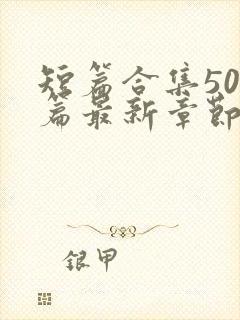 短篇合集50
篇最新章节
银甲